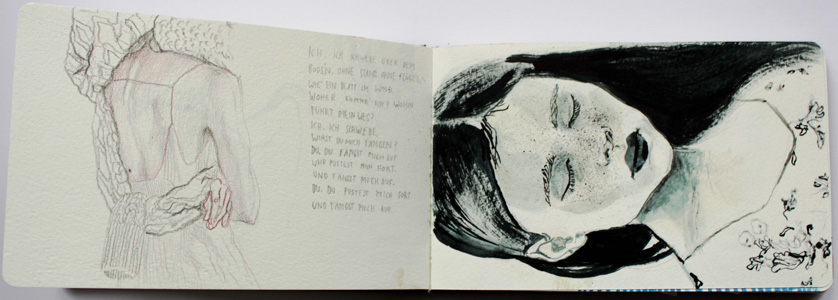 ICH, ICH SCHWEBE ÜBER DEM
BODEN, OHNE STAND, OHNE
WIE EIN BLATT IM WIND.
WOHER KOMME UND WOHIN
FÜHRT MEIN WEG?
ICH, ICH SCHWEBE,
WIRST DU MICH FANGEN?
DU, DU FÄNGST MICH AUF
UND PUSTEST MICH FORT.
UND FÄNGST MICH AUF.
DU, DU PUSTEST MICH FORT
UND FÄNGST MICH AUF.